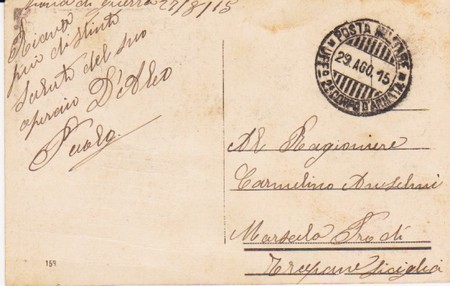 Zona di Guerra 27/8/15
Riceva
più distinti
saluti dal suo
operaio D'Aleo
Paolo.
POSTA MILITARE
29 AGO. 15
2° CORPO D'ARMATA
Al Ragioniere
Carmelino Anselmi
Marsala Pro di
Trapane Siciglia
159